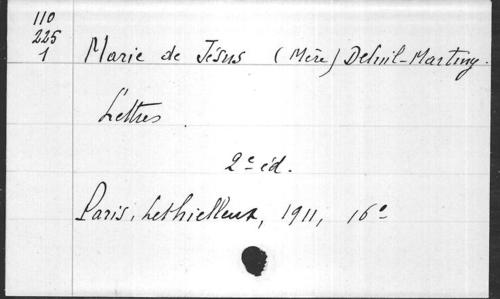 110
225
1
Marie de Jésus (Mère) Deluil-Martiny.
Lettres.
2e éd.
Paris, Lethielleux, 1911, 16°